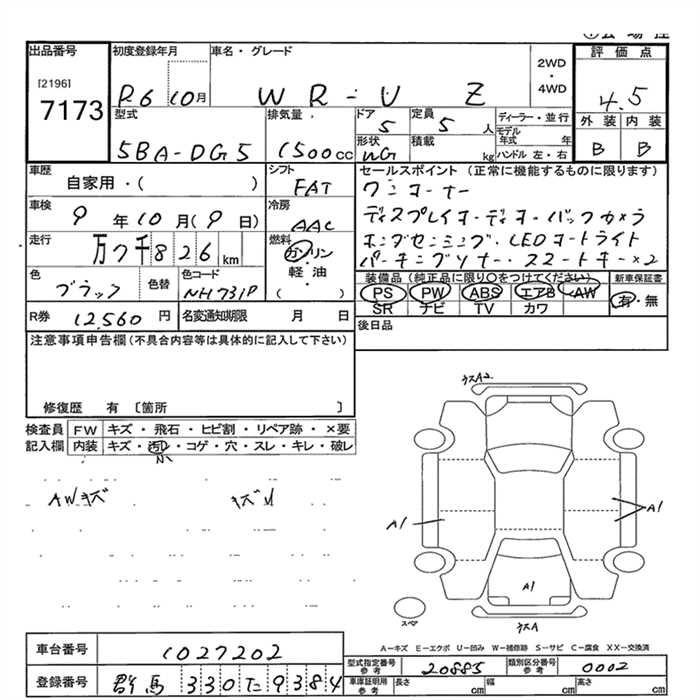 出品番号
[2196]
7173
初度登録年月
R6 10月
車名・グレード
WR-V Z
2WD
・
4WD
評価点
4.5
外装 内装
B B
型式
5BA-DG5
排気量
1500cc
ドア
5
定員
5人
ディーラー・並行
形状
WG
積載
kg
モデル
年式 年
ハンドル 左・右
車歴
自家用・( )
シフト
FAT
車検
9年10月(9日)
冷房
AAC
走行
万7千826km
燃料
ガソリン
・
軽油
( )
色
ブラック
色替
色コード
NH731P
R券 12,560円
名変通知期限 月 日
セールスポイント (正常に機能するものに限ります)
ワンオーナー
ディスプレイオーディオ・バックカメラ
ホンダセンシング・LEDオートライト
パーキングソナー・スマートキー×2
装備品(純正品に限り○をつけてください)
新車保証書
PS PW ABS エアB AW
有・無
SR ナビ TV カワ
後日品
注意事項申告欄(不具合内容等は具体的に記入して下さい)
修復歴 有〔箇所 〕
検査員
記入欄
FW キズ・飛石・ヒビ割・リペア跡・×要
内装 キズ・汚れ・コゲ・穴・スレ・キレ・破レ
小
AWキズ
ウスA2
A1
A1
A1
スペア
ウスA
A-キズ E-エクボ U-凹み W-補修跡 S-サビ C-腐食 XX-交換済
車台番号
1027202
登録番号
群馬330た9384
型式指定番号
参考
20885
類別区分番号
参考
0002
車庫証明用
参考
長さ cm
幅 cm
高さ cm